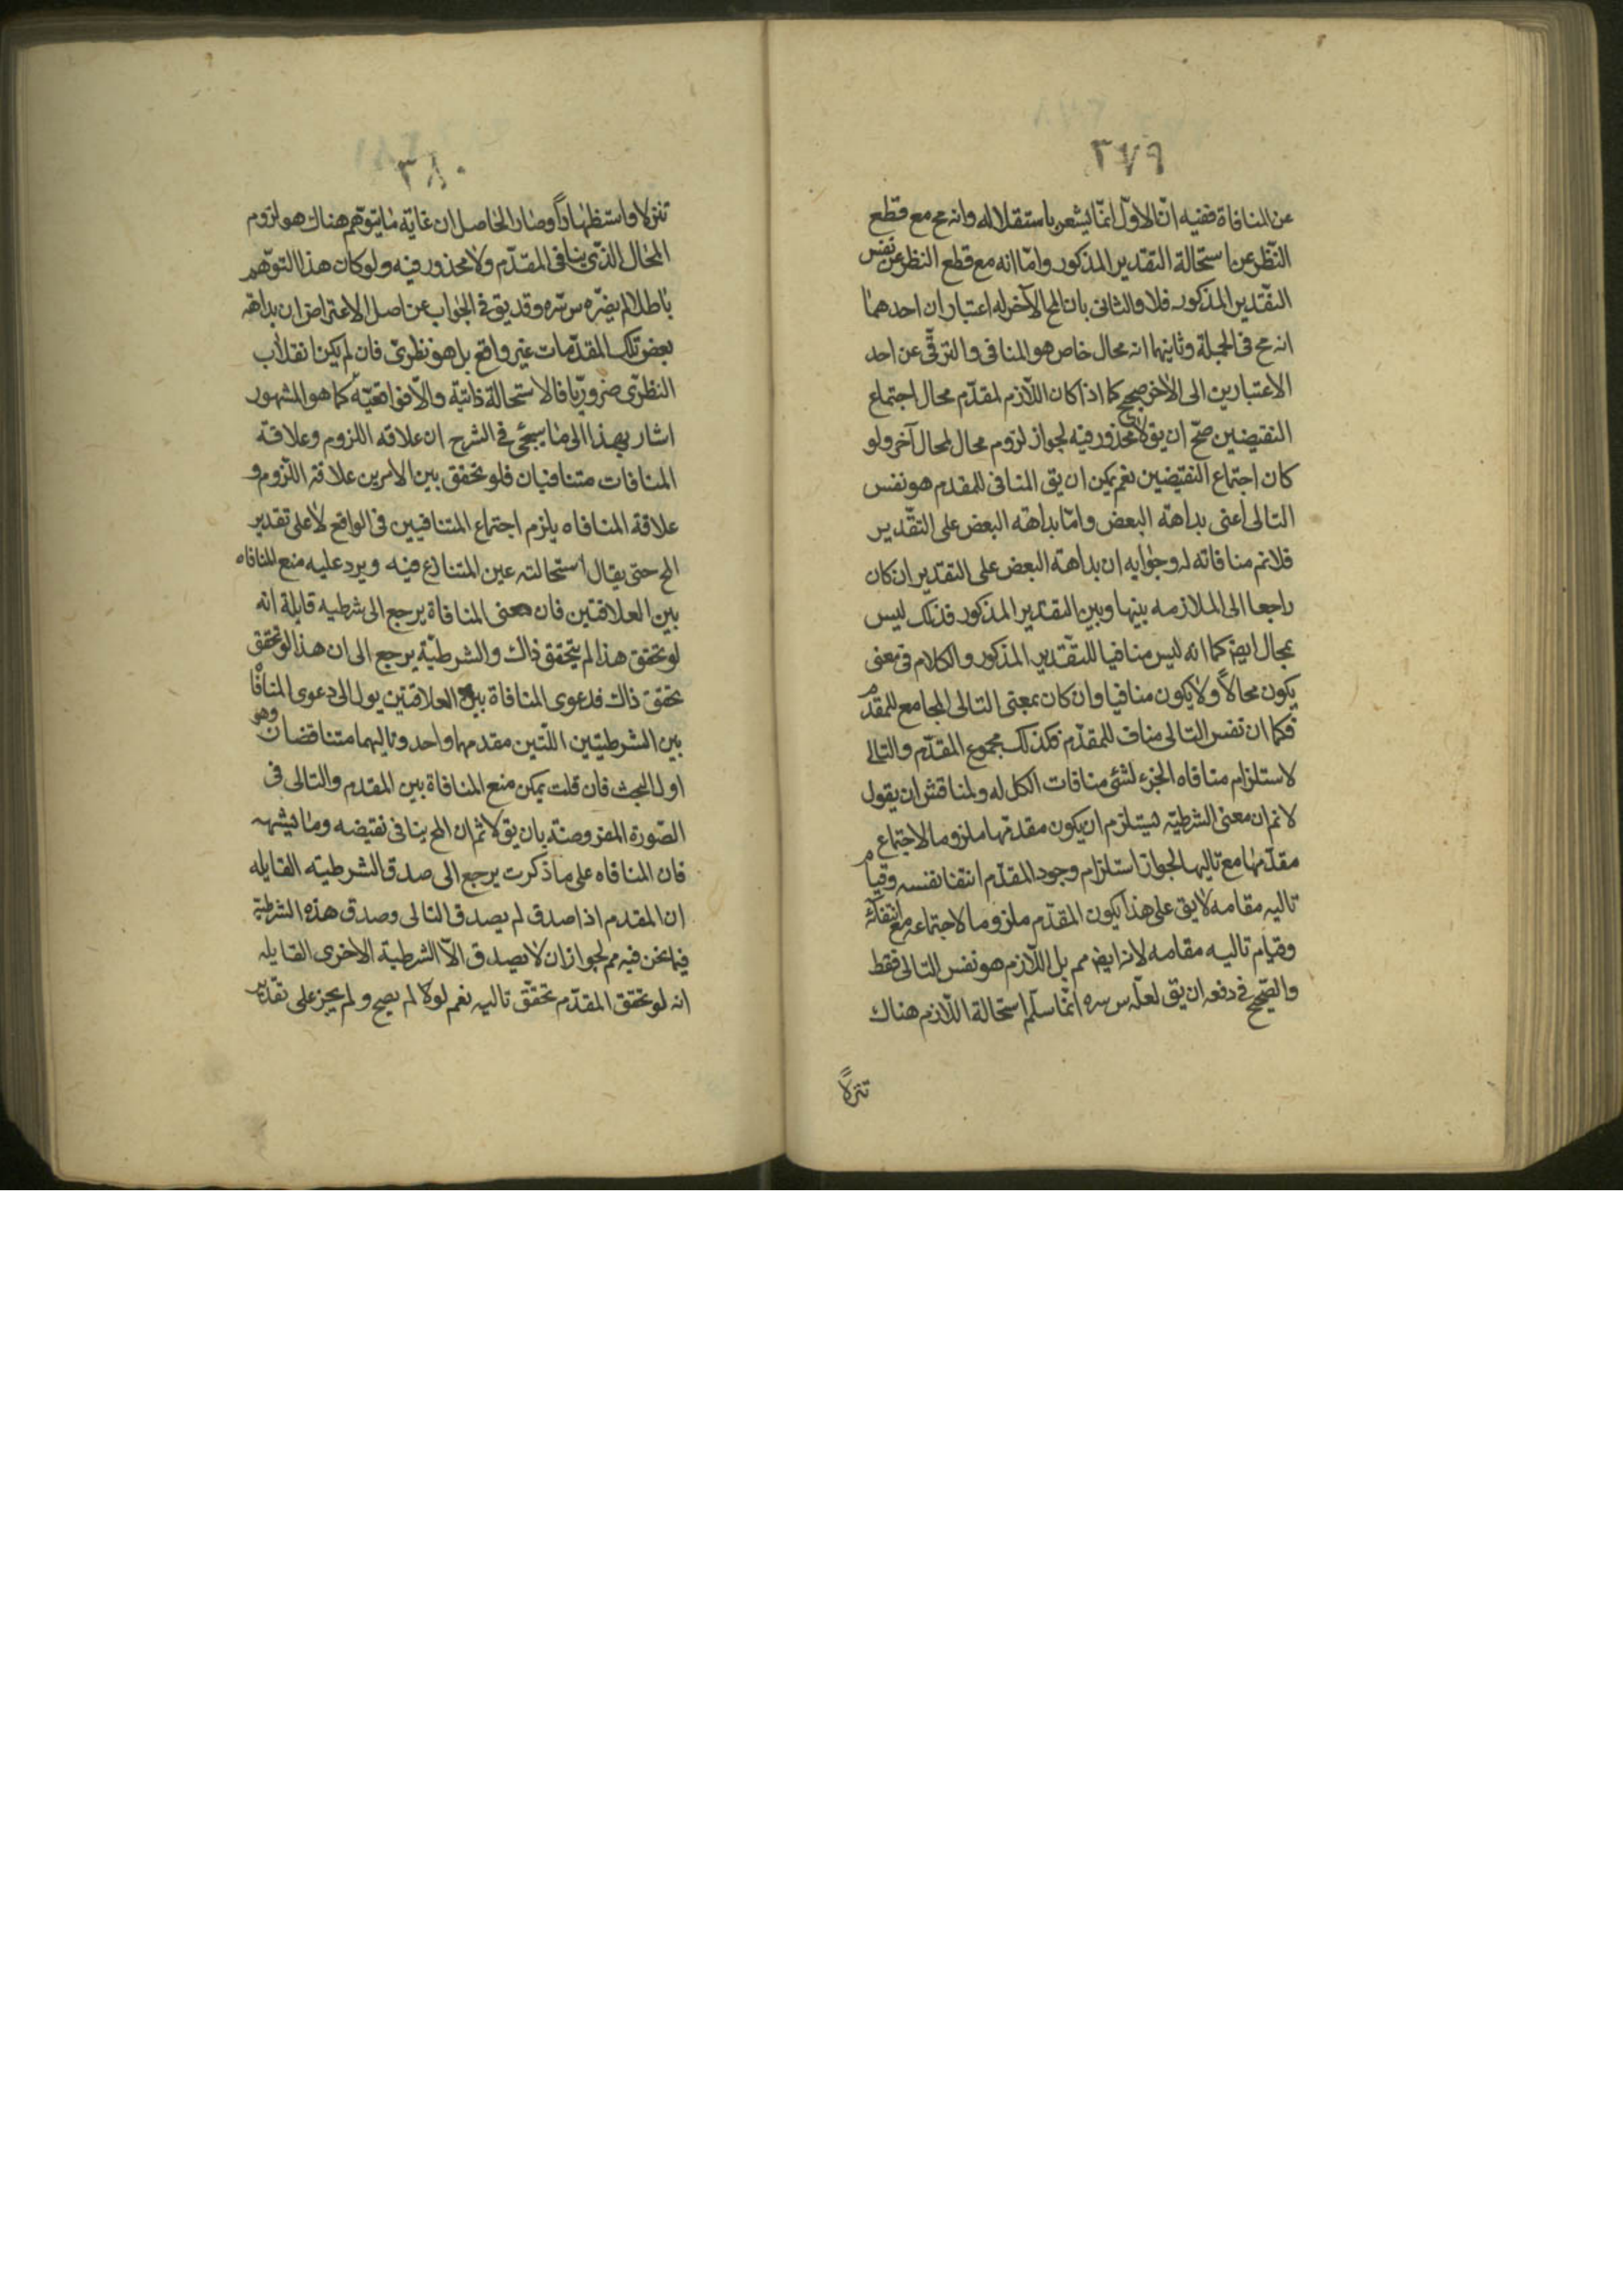 ٣٧٩
عن المنافاة ففيه انّ الاوّل انّما يشعر باستقلاله وانه مح مع قطع
النّظر عن استحالة التقدير المذكور وامّا انه مع قطع النظر عن نفس
التقدير المذكور فلا والثانى بان المح الآخر له اعتباران احدهما
انه مح فى الجملة وثانيهما انه محال خاص هو المنافى والترقّى عن احد
الاعتبارين الى الاخر صحيح كما اذا كان اللّازم لمقدّم محال اجتماع
النقيضين صحّ ان يق لا محذور فيه لجواز لزوم محال لمحال آخر ولو
كان اجتماع النقيضين نعم يمكن ان يق المنافى للمقدم هو نفس
التالى اعنى بداهة البعض وامّا بداهة البعض على التقدير
فلانم منافاته له وجوابه ان بداهة البعض على التقدير ان كان
راجعا الى الملازمه بينها وبين التقدير المذكور فذلك ليس
بمحال ايض كما انه ليس منافيا للتقدير المذكور والكلام فى معنى
يكون محالاً ولا يكون منافيا وان كان بمعنى التالى المجامع للمقدم
فكما ان نفس التالى مناف للمقدّم فكذلك مجموع المقدّم والتالى
لاستلزام منافاه الجزء لشئ منافات الكل له ولمناقش ان يقول
لانم ان معنى الشرطية يستلزم ان يكون مقدمها ملزوما لاجتماع
مقدّمها مع تاليها لجواز استلزام وجود المقدّم انتفا نفسه وقيام
تاليه مقامه لا يق على هذا يكون المقدّم ملزوما لاجتماعه مع انتفائه
وقيام تاليه مقامه لانه ايض مم بل اللّازم هو نفس التالى فقط
والصّحيح فى دفعه ان يق لعلّه س سره انّما سلّم استحالة اللّازم هناك
تنزلاً
٣٨٠
تنزلا واستظهاراً وصار الحاصل ان غاية ما يتوهّم هناك هو لزوم
المحال الذّى ينافى المقدّم ولا محذور فيه ولو كان هذا التوهّم
باطلا لم يضرّه س سّره وقد يق فى الجواب عن اصل الاعتراض ان بداهة
بعض تلك المقدّمات غير واقع بل هو نظرىّ فان لم يكن انقلاب
النظرّى ضروريّا فالاستحالة ذاتيّة والّا فواقعيّة كما هو المشهور
اشار بهذا الى ما سيجئ فى الشرح ان علاقه اللزوم وعلاقة
المنافات متنافيان فلو تحقق بين الامرين علاقة اللّزوم و
علاقة المنافاه يلزم اجتماع المتنافيين فى الواقع لا على تقدير
المح حتى يقال استحالته عين المتنازع فيه ويرد عليه منع المنافاه
بين العلاقتين فان معنى المنافاة يرجع الى شرطيه قايلة انه
لو تحقق هذا لم يتحقق ذاك والشرطيّة يرجع الى ان هذا لو تحقق
تحقق ذاك فدعوى المنافاة بين العلاقتين يول الى دعوى المنافاة
بين الشرطيتين اللّتين مقدمها واحد وتاليهما متناقضان وهو
اول البحث فان قلت يمكن منع المنافاة بين المقدم والتالى فى
الصّورة المفروضة بان يق لانم ان المح ينافى نقيضه وما يشبهه
فان المنافاه على ما ذكرت يرجع الى صدق الشرطيته القايله
ان المقدم اذا صدق لم يصدق التالى وصدق هذه الشرطية
فيما نحن فيه مم لجواز ان لا يصدق الّا الشرطية الاخرى القايله
انه لو تحقق المقدّم تحقّق تاليه نعم لولا لم يصح ولم يجز على تقدير